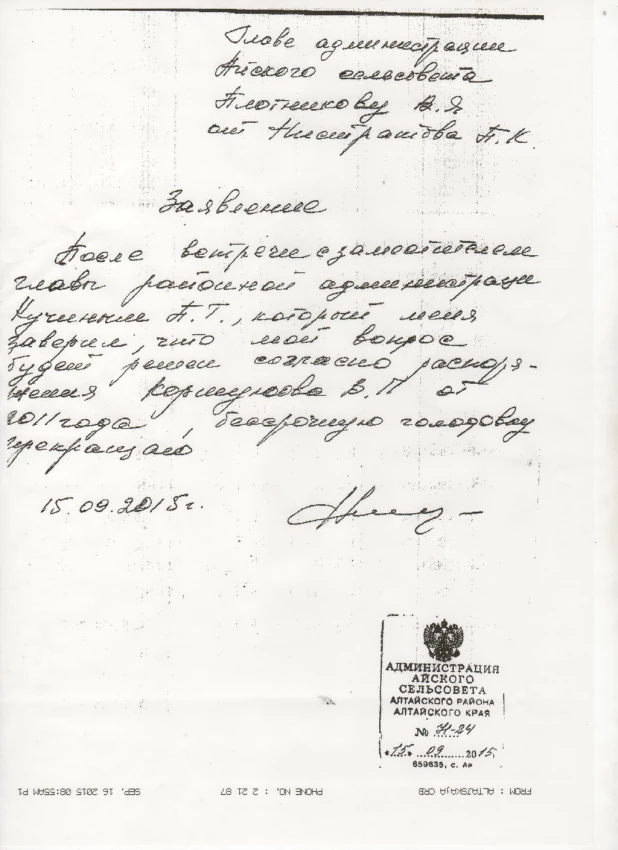 Главе администрации
Айского сельсовета
Плотникову В.Я
от Нистратова П.К.
Заявление
После встречи с заместителем
главы районной администрации
Кучиным П.Т., который меня
заверил, что мой вопрос
будет решен согласно распоря-
жения Коршунова В.П от
2011 года, бессрочную голодовку
прекращаю
15.09.2015г.
АДМИНИСТРАЦИЯ
АЙСКОГО
СЕЛЬСОВЕТА
АЛТАЙСКОГО РАЙОНА
АЛТАЙСКОГО КРАЯ
№ Н-24
«15» 09 2015
659635, с. Ая
FROM : ALTAJSKAJA CRB PHONE NO. : 2 21 87 SEP. 16 2015 08:55AM P1